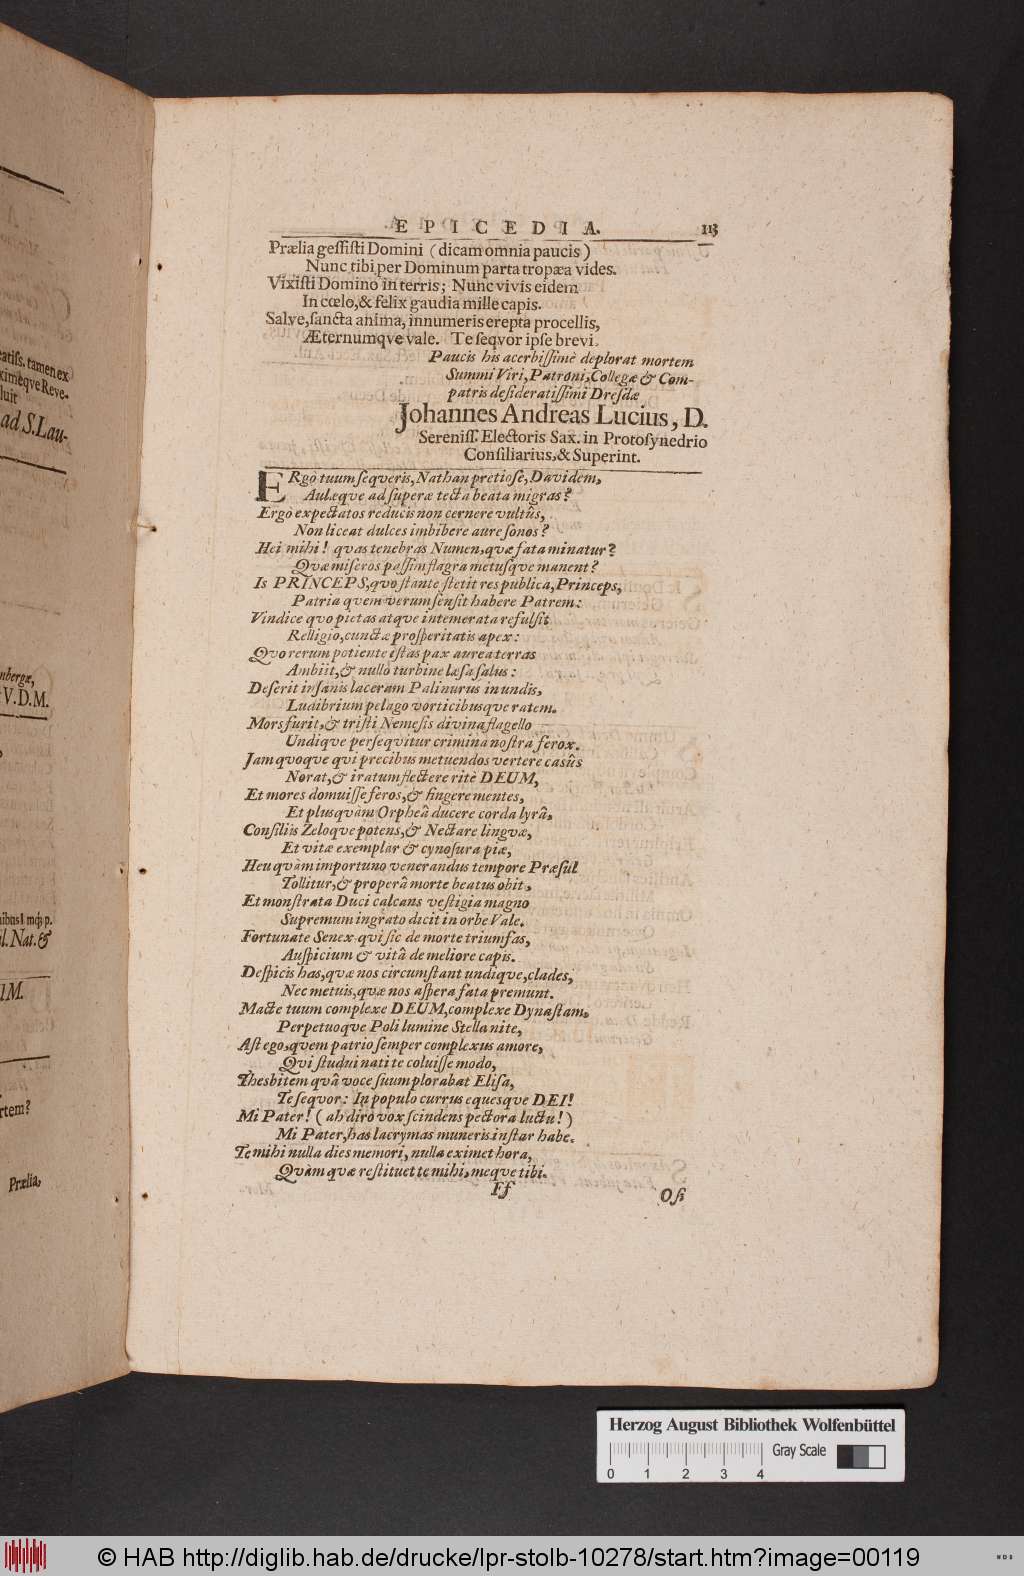 eatiſs. tamen ex
ximèqve Reve-
luit
ad S. Lau-
nbergæ,
V.D.M.
nibus! mq́; p.
il. Nat. &
IM.
rtem?
Prælia,
EPICEDIA. 113
Prælia geſſiſti Domini (dicam omnia paucis)
Nunc tibi per Dominum parta tropæa vides.
Vixiſti Domino in terris; Nunc vivis eidem
In cœlo, & felix gaudia mille capis.
Salve, ſancta anima, innumeris erepta procellis,
Æternumqve vale. Te ſeqvor ipſe brevi.
Paucis his acerbiſſimè deplorat mortem
Summi Viri, Patroni, Collegæ & Com-
patris deſideratiſſimi Dreſdæ
Johannes Andreas Lucius, D.
Sereniſſ. Electoris Sax. in Protoſynedrio
Conſiliarius, & Superint.
ERgò tuum ſeqveris, Nathan pretioſe, Davidem,
Aulæqve ad ſuperæ tecta beata migras?
Ergò expectatos reducis non cernere vultûs,
Non liceat dulces imbibere aure ſonos?
Hei mihi! qvas tenebras Numen, qvæ fata minatur?
Qvæ miſeros paſſim flagra metuſqve manent?
Is PRINCEPS, qvo ſtante ſtetit res publica, Princeps,
Patria qvem verum ſenſit habere Patrem:
Vindice qvo pietas atqve intemerata refulſit
Relligio, cunctæ proſperitatis apex:
Qvo rerum potiente iſtas pax aurea terras
Ambiit, & nullò turbine læſa ſalus:
Deſerit inſanis laceram Palinurus in undis,
Ludibrium pelago vorticibusqve ratem.
Mors furit, & triſti Nemeſis divina flagello
Undiqve perſeqvitur crimina noſtra ferox.
Jam qvoqve qvi precibus metuendos vertere caſûs
Norat, & iratum flectere ritè DEUM,
Et mores domuiſſe feros, & fingere mentes,
Et plusqvàm Orpheâ ducere corda lyrâ,
Conſiliis Zeloqve potens, & Nectare lingvæ,
Et vitæ exemplar & cynoſura piæ,
Heu qvàm importuno venerandus tempore Præſul
Tollitur, & properâ morte beatus obit,
Et monſtrata Duci calcans veſtigia magno
Supremum ingrato dicit in orbe Vale.
Fortunate Senex qvi ſic de morte triumfas,
Auſpicium & vitâ de meliore capis.
Deſpicis has, qvæ nos circumſtant undiqve, clades,
Nec metuis, qvæ nos aſpera fata premunt.
Macte tuum complexe DEUM, complexe Dynaſtam,
Perpetuoqve Poli lumine Stella nite,
Aſt ego, qvem patrio ſemper complexus amore,
Qvi ſtudui nati te coluiſſe modo,
Thesbitem qvâ voce ſuum plorabat Eliſa,
Te ſeqvor: In populo currus equesqve DEI!
Mi Pater! (ah diro vox ſcindens pectora luctu!)
Mi Pater, has lacrymas muneris inſtar habe.
Te mihi nulla dies memori, nulla eximet hora,
Qvàm qvæ reſtituet te mihi, meqve tibi.
Ff Oſi
Herzog August Bibliothek Wolfenbüttel
Gray Scale
0 1 2 3 4
© HAB http://diglib.hab.de/drucke/lpr-stolb-10278/start.htm?image=00119